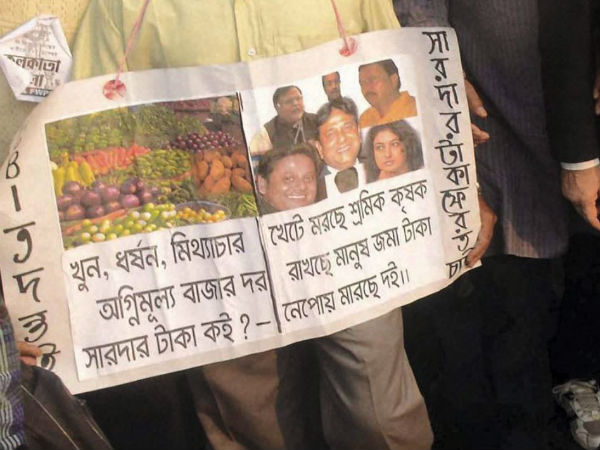 কলকাতা
BI-তদন্ত
খুন, ধর্ষন, মিথ্যাচার
অগ্নিমূল্য বাজার দর
সারদার টাকা কই ? –
খেটে মরছে শ্রমিক কৃষক
রাখছে মানুষ জমা টাকা
নেপোয় মারছে দই।।
সারদার টাকা ফেরত চা